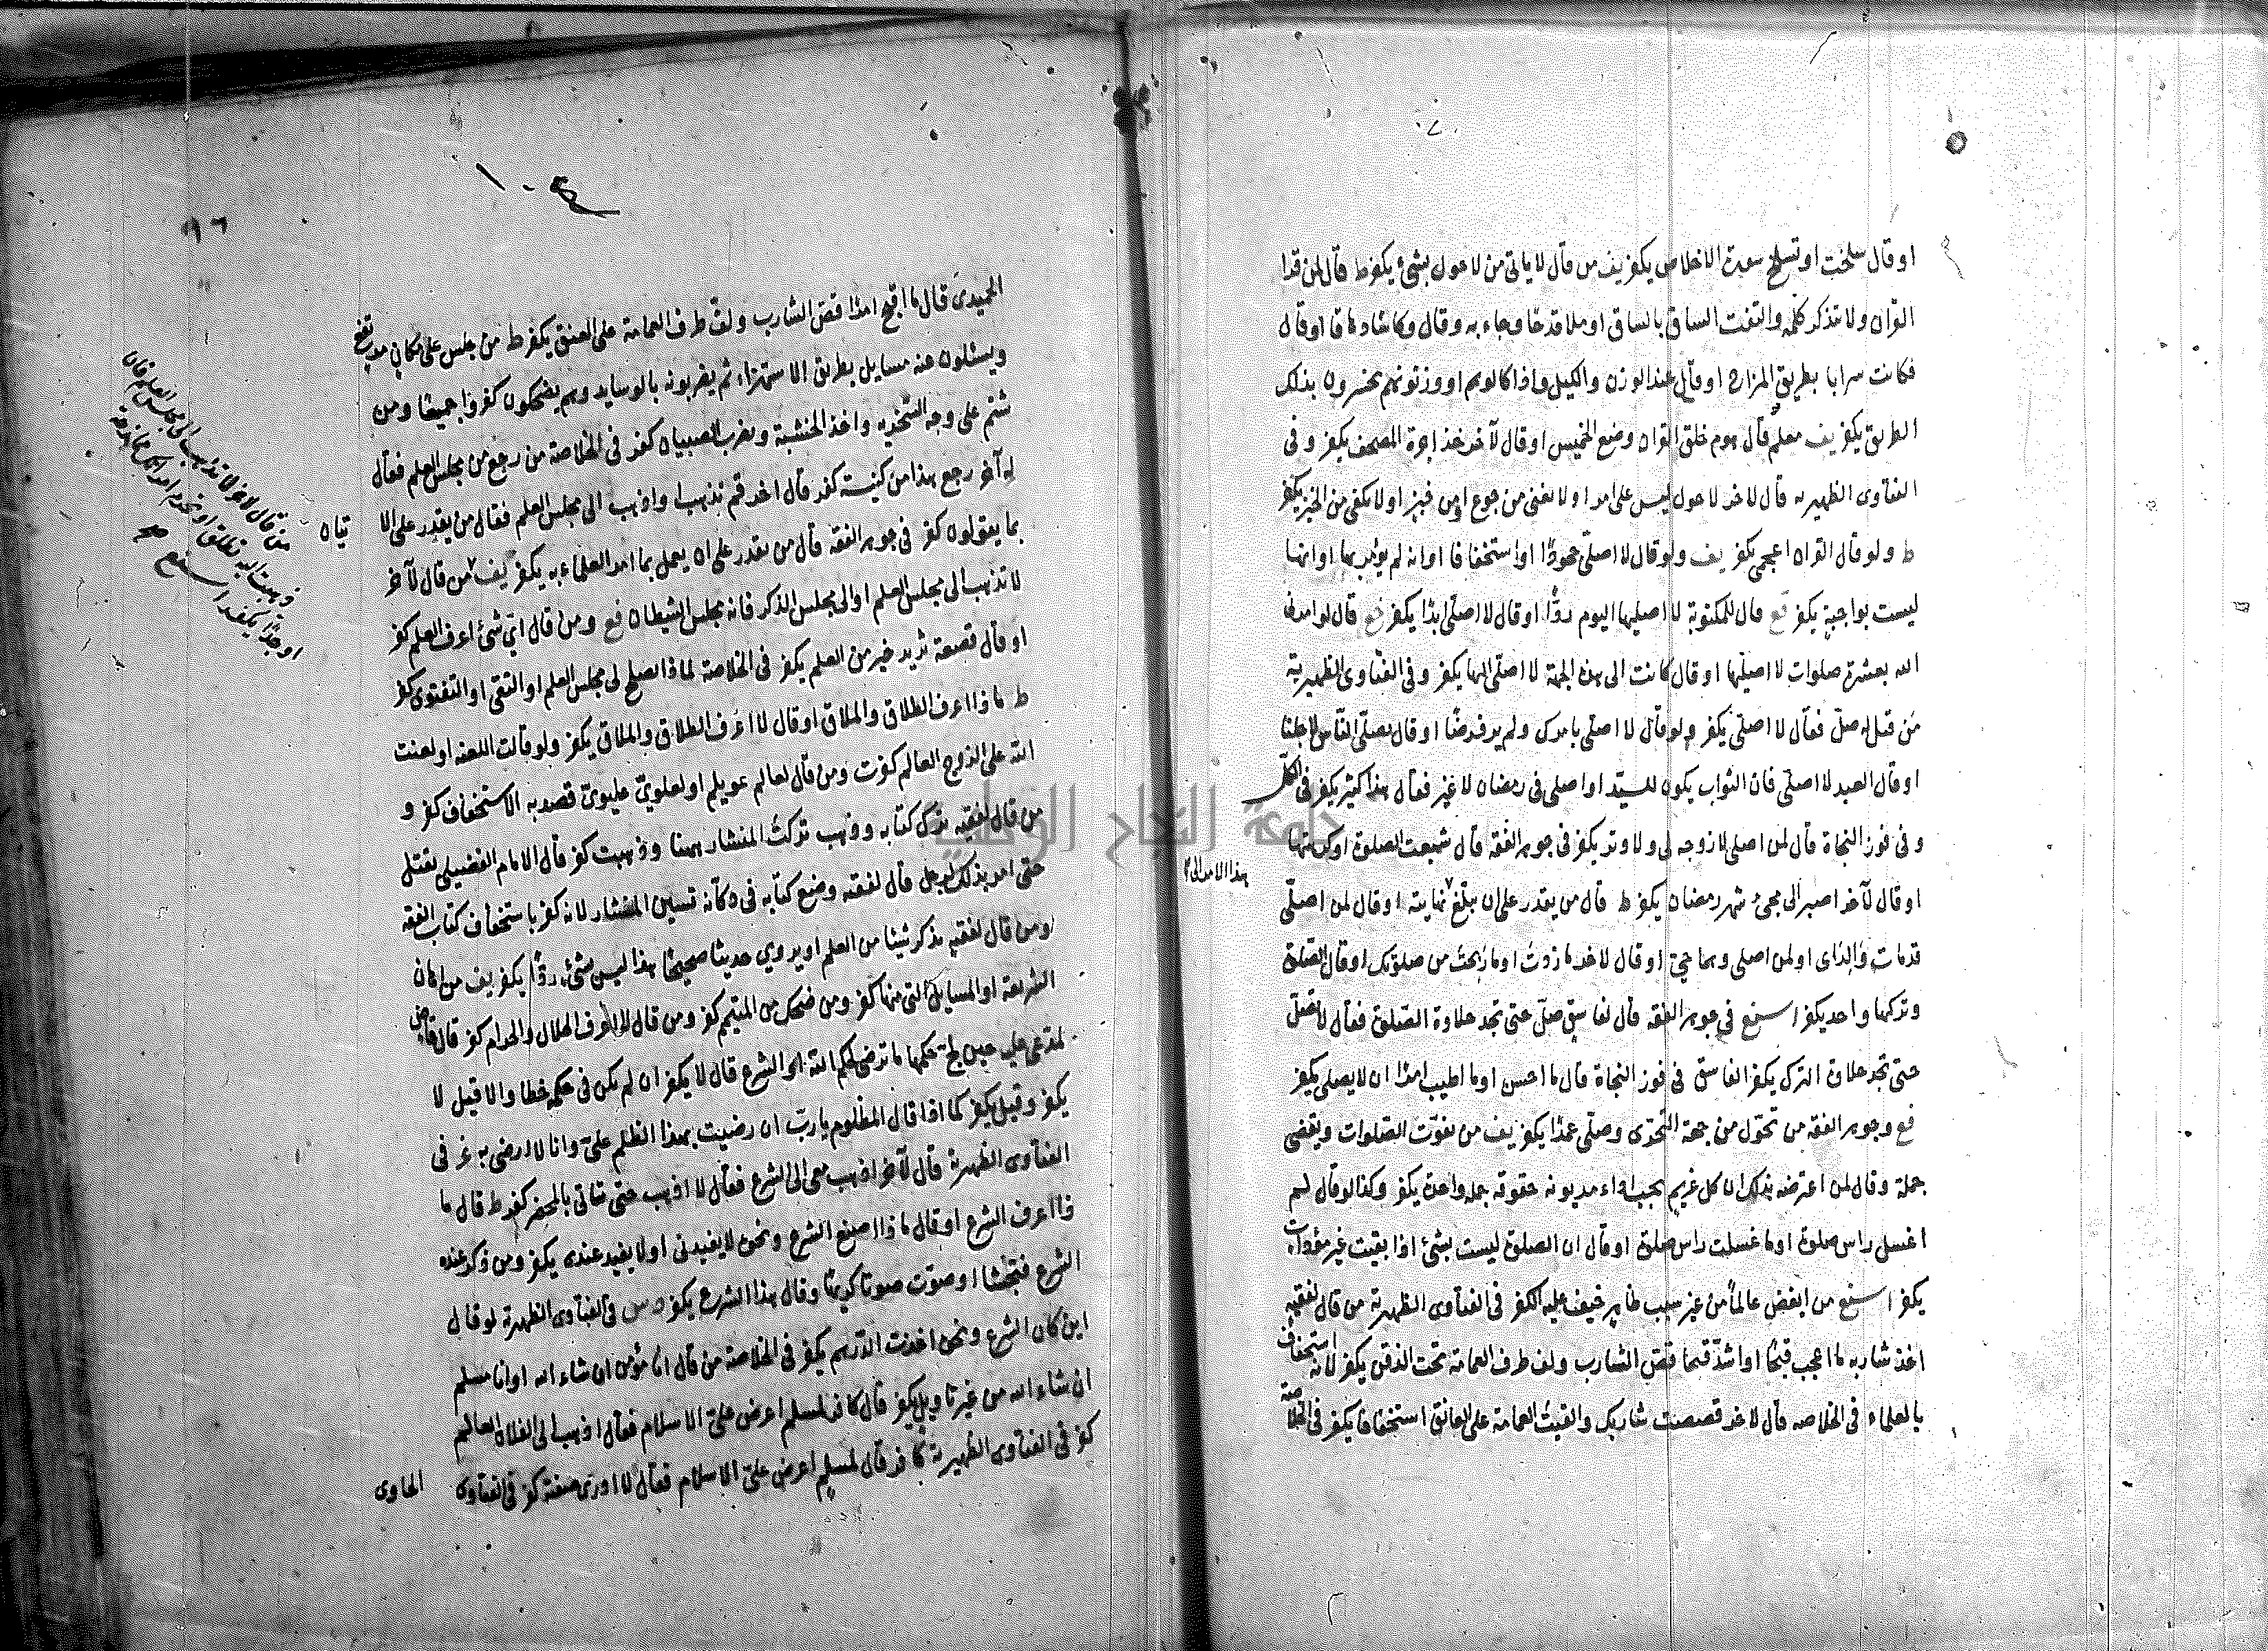 او قال سلخت او تسلخ سورة الاخلاص يكفر يف من قال لا ياتي من لا حول بشئ يكفر ط قال لمن قرا
القران ولا يتذكر كلمة والتفت الساق بالساق او ملا قدحا وجاء به وقال وكاسا دهاقا او قال
فكانت سرابا بطريق المزاح او قال عند الوزن والكيل واذا كالوهم او وزنوهم يخسرون بذلك
الطريق يكفر يف معلم قال يوم خلق القران وضع الخميس او قال لآخر خذ اجرة المصحف يكفر وفى
الفتاوى الظهيريه قال لآخر لا حول ليس على امر او لا يغنى من جوع او من خبز او لا يكفى من الخبز يكفر
ط ولو قال القران اعجمى يكفر يف ولو قال لا اصلى جحودا او استخفافا او انه لم يؤمر بها او انها
ليست بواجبة يكفر فع قال للمكتوبة لا اصليها اليوم ردا او قال لا اصلى ابدا يكفر فع قال لو امرنى
الله بعشرة صلوات لا اصليها او قال كانت الى هذه الجهة لا اصلى اليها يكفر وفى الفتاوى الظهيرية
من قيل له صل فقال لا اصلى يكفر ولو قال لا اصلى بامرك ولم يرد فرضا او قال يصلى الناس لاجلنا
او قال العبد لا اصلى فان الثواب يكون للسيد او اصلى فى رمضان لا غير فقال هذا كثير يكفر فى الكل
وفى فوز النجاة قال لمن اصلى لا زوجه لى ولا ولد يكفر فى جوهر الفقه قال شبعت الصلوة او كرهتها
هذا الامر الى
او قال لآخر اصبر الى مجئ شهر رمضان يكفر ط قال من يقدر على ان يبلغ نهايته او قال لمن اصلى
قد مات والداى او لمن اصلى وهما حى او قال لآخر ما زدت او ما ربحت من صلوتك او قال الصلوة
وتركها واحد يكفر فى جوهر الفقه قال لفاسق صل حتى تجد حلاوة الصلوة فقال لا تصل
حتى تجد حلاوة الترك يكفر الفاسق فى فوز النجاة قال ما احسن او ما اطيب امرا ان لا يصلى يكفر
فع وجوهر الفقه من تحول من جهة التحرى وصلى عمدا يكفر يف من تفوت الصلوات ويقضى
جملة وقال لمن اعترضه بذلك ان كل غريم يحب اداء مديونه حقوقه جملة واحدة يكفر وكذا لو قال لم
اغسل راس صلوة او ما غسلت راس صلوة او قال ان الصلوة ليست بشئ اذا بقيت غير مؤداة
يكفر من ابغض عالما من غير سبب ظاهر خيف عليه الكفر فى الفتاوى الظهيرية من قال لفقيه
اخذ شاربه ما اعجب قبحا او اشد قبحا قص الشارب ولف طرف العمامة تحت الذقن يكفر لانه استخفاف
بالعلماء فى الخلاصه قال لآخر قصصت شاربك والقيت العمامة على العاتق استخفافا يكفر فى الخلاصة
٩٦
الحميدى قال ما اقبح امرا قص الشارب ولف طرف العمامة على العنق يكفر ط من جلس على مكان مرتفع
ويسئلون عنه مسايل بطريق الاستهزاء ثم يضربونه بالوسايد وهم يضحكون كفروا جميعا ومن
شتم على وجه السخرية واخذ الخشبة وضرب الصبيان كفر فى الخلاصة من رجع من مجلس العلم فقال
له آخر رجع هذا من كنيسة كفر قال آخر قم نذهب او اذهب الى مجلس العلم فقال من يقدر على الاتيان
بما يقولون كفر فى جوهر الفقه قال من يقدر على ان يعمل بما امر العلماء به يكفر يف من قال لآخر
لا تذهب الى مجلس العلم او الى مجلس الذكر فانه مجلس الشيطان فع ومن قال اى شئ اعرف العلم كفر
او قال قصعة ثريد خير من العلم يكفر فى الخلاصة لماذا يصلح لى مجلس العلم او التقى او الفتوى كفر
ط ماذا اعرف الطلاق والملاق او قال لا اعرف الطلاق والملاق يكفر ولو قالت اللعنة او لعنت
الله على الزوج العالم كفرت ومن قال لعالم عويلم او لعلوى عليوى قصد به الاستخفاف كفر و
من قال لفقيه ترك كتابه وذهب تركت المنشار ههنا وذهبت كفر قال الامام الفضيلى يقتل
حتى امر بذلك لرجل قال لفقيه وضع كتابه فى دكانه نسيت المنشار لانه كفر باستخفاف كتاب الفقه
ومن قال لفقيه يذكر شيئا من العلم او يروي حديثا صحيحا هذا ليس بشئ ردا يكفر يف من اهان
الشريعة او المسايل التى منها كفر ومن ضحك من المتيمم كفر ومن قال لا اعرف الحلال والحرام كفر قال قاضى
يكفر وقيل يكفر كما اذا قال المظلوم يا رب ان رضيت بهذا الظلم على وانا لا ارضى به غر فى
الفتاوى الظهيرية قال لآخر اذهب معى الى الشرع فقال لا اذهب حتى تأتى بالمحضر كفر ط قال ما
ذا اعرف الشرع او قال ماذا اصنع الشرع ونحن لا يفيدنى او لا يفيد عندى يكفر ومن ذكر عنده
الشرع فتجشا او صوت صوتا كريها وقال هذا الشرع يكفر فى الفتاوى الظهيرية لو قال
اين كان الشرع ونحن اخذت الدرهم يكفر فى الخلاصة من قال انا مؤمن ان شاء الله او انا مسلم
ان شاء الله من غير تاويل يكفر قال كافر لمسلم اعرض على الاسلام فقال اذهب الى الفلان العالم
كفر فى الفتاوى الظهيرية كافر قال لمسلم اعرض على الاسلام فقال لا ادرى صفته كفر فى الفتاوى
الحاوى
من قال لآخر لا تذهب الى مجلس العلم فان
ذهبت اليه تطلق او تحرم امراتك
او جدا يكفر
جامعة النجاح الوطنية